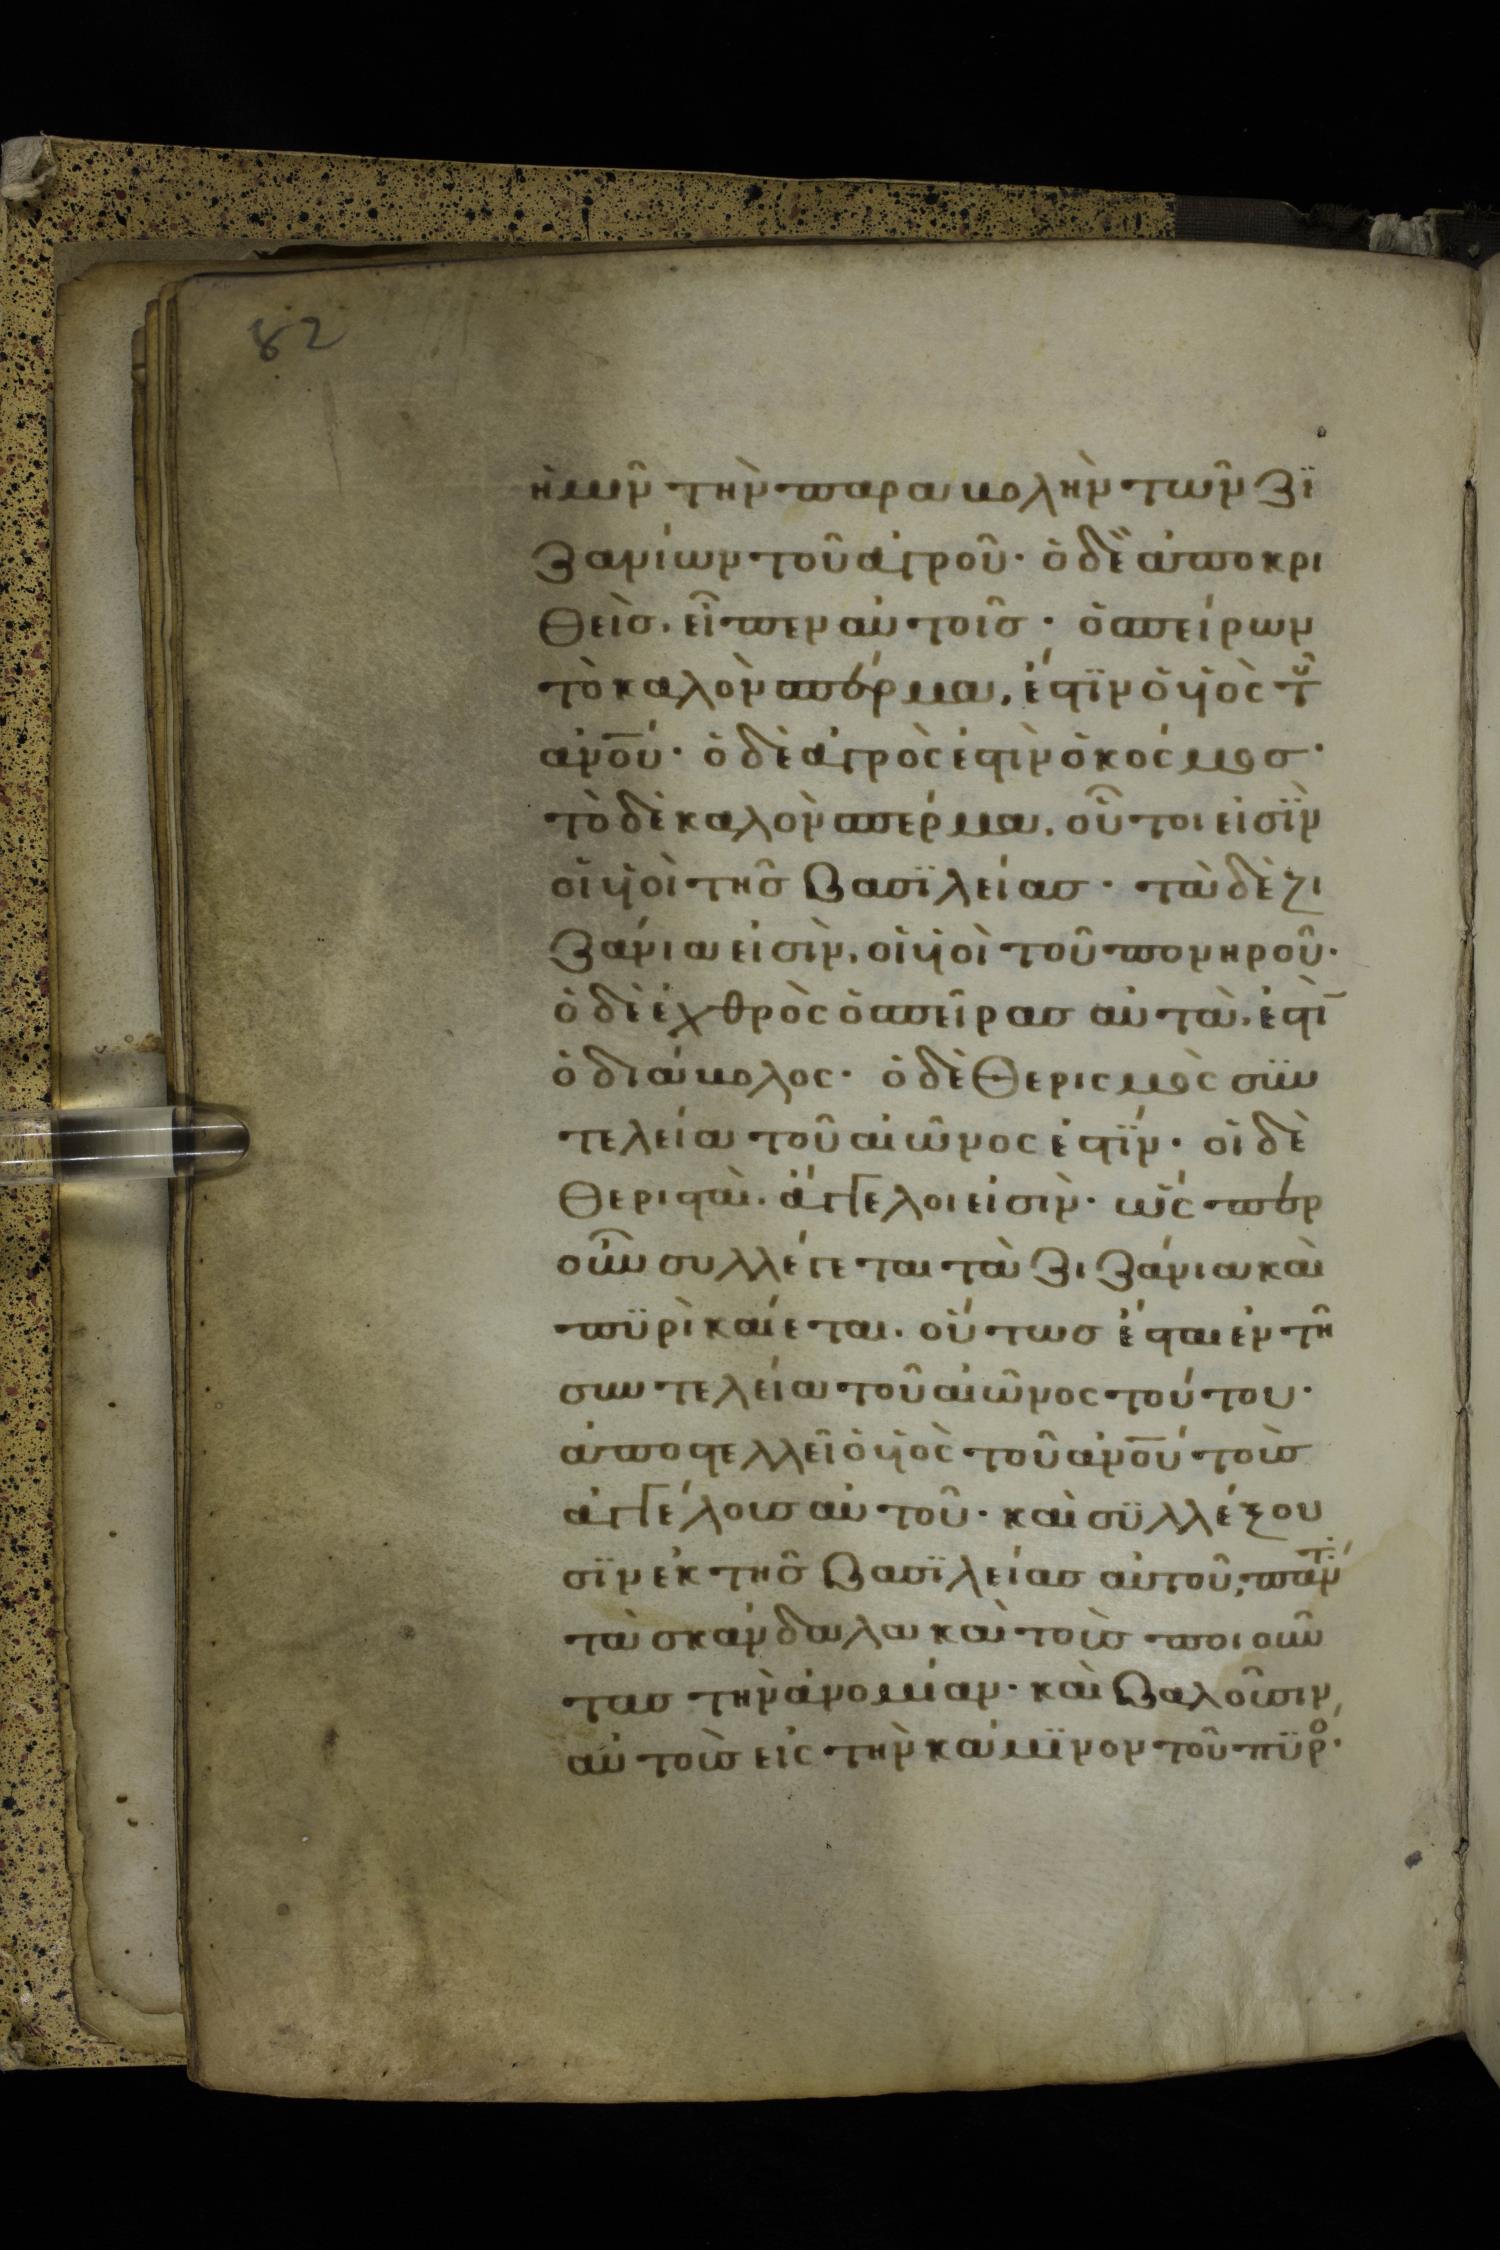 82
ἡμῖν τὴν παραβολὴν τῶν ζϊ
ζανίων τοῦ ἀγροῦ· ὁ δὲ ἀποκρι
θεὶς, εἶπεν αὐτοῖς· ὁ σπείρων
τὸ καλὸν σπέρμα, ἐστϊν ὁ ὑιὸς τοῦ
ανου· ὁ δὲ ἀγρὸς ἐστὶν ὁ κόσμος·
τὸ δὲ καλὸν σπέρμα, οὗτοι εἰσϊν
οἱ ὑιοὶ τῆς βασϊλείας· τὰ δὲ ζι
ζάνια εἰσὶν, οἱ ὑιοὶ τοῦ πονηροῦ·
ὁ δὲ ἐχθρὸς ὁ σπείρας αὐτὰ, ἐστὶ
ὁ διάβολος· ὁ δὲ θερισμὸς συν
τελεία τοῦ αἰῶνος ἐστϊν· οἱ δὲ
θερισταὶ, ἄγγελοι εἰσὶν· ὥσπερ
οὖν συλλέγεται τὰ ζιζάνια καὶ
πϋρὶ καίεται, οὕτως ἔσται ἐν τῆ
συντελεία τοῦ αἰῶνος τούτου·
ἀποστελλεῖ ὁ ὑιὸς τοῦ ανου τοὺς
ἀγγέλους αὐτοῦ· καὶ σϋλλέξου
σϊν ἐκ τῆς βασϊλείας αὐτοῦ, πάντ
τὰ σκάνδαλα καὶ τοὺς ποιοῦν
τας τὴν ἀνομίαν· καὶ βαλοῦσιν
αὐτοὺς εἰς τὴν κάμϊνον τοῦ πϋρο·